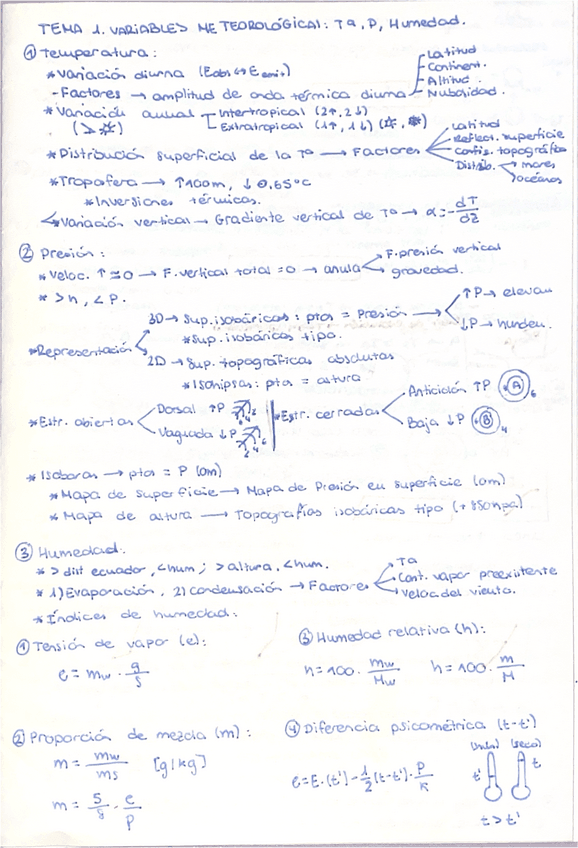 TEMA 1. VARIABLES METEOROLÓGICAS: Tª, P, Humedad.
① Temperatura:
* Variación diurna (Eabs ↔ Eemit)
- Factores → amplitud de onda térmica diurna
Latitud
Continent.
Altitud.
Nubosidad.
* Variación anual
Intertropical (2↑, 2↓)
Extratropical (1↑, 1↓)
* Distribución superficial de la Tª → Factores
Latitud
Reflect. superficie
Config. topográfica
Distrib.
mares
océanos
* Troposfera → ↑100m, ↓0,65°C
* Inversiones térmicas.
Variación vertical → Gradiente vertical de Tª → α = - dT/dz
② Presión:
* Veloc. ↑ ≃ 0 → F. vertical total = 0 → anula
F. presión vertical
gravedad.
* > h, < P.
* Representación
3D → Sup. isobáricas: ptos = Presión
↑P → elevan
↓P → hunden.
* Sup. isobáricas tipo.
2D → Sup. topográficas absolutas
* Isohipsas: ptos = altura
* Estr. abiertas
Dorsal ↑P
Vaguada ↓P
* Estr. cerradas
Anticiclón ↑P A 6
Baja ↓P B 4
* Isobaras → ptos = P (0m)
* Mapa de superficie → Mapa de Presión en superficie (0m)
* Mapa de altura → Topografías isobáricas tipo
③ Humedad:
* > dist ecuador, < hum; > altura, < hum.
* 1) Evaporación, 2) condensación → Factores
Tª
Cont. vapor preexistente
Veloc. del viento.
* Índices de humedad:
① Tensión de vapor (e):
e = mw · g/s
③ Humedad relativa (h):
h = 100 · mw/Mw h = 100 · m/M
② Proporción de mezcla (m):
m = mw/ms [g/kg]
m = 5/8 · e/p
④ Diferencia psicométrica (t-t')
e = E · (t') - 1/2 (t-t') · P/K
(húm) (seco)
t' t
t > t'